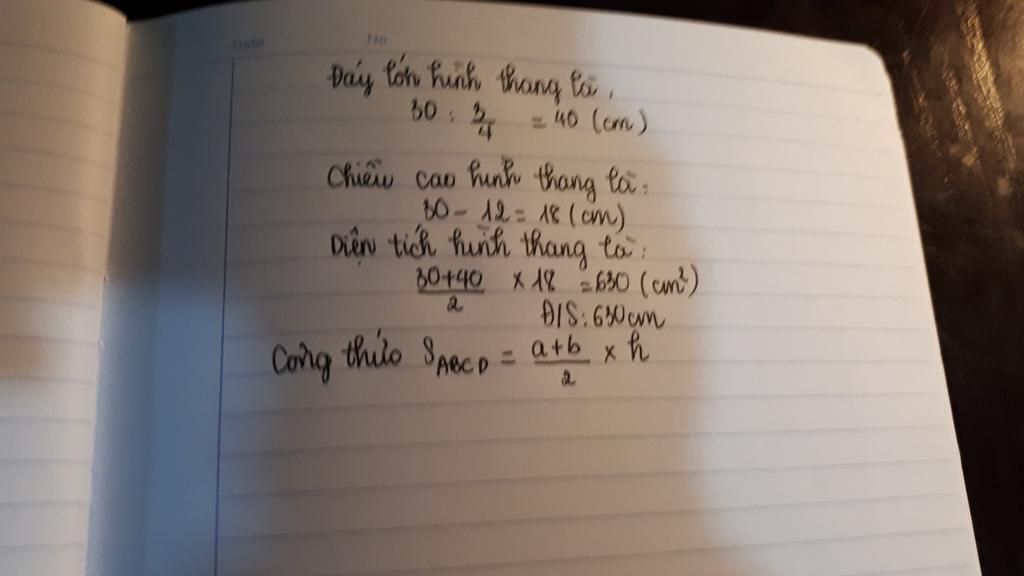 Date No
Đáy lớn hình thang là:
30 : 3/4 = 40 (cm)
Chiều cao hình thang là:
30 - 12 = 18 (cm)
Diện tích hình thang là:
30+40/2 x 18 = 630 (cm²)
Đ/S: 630cm
Công thức S ABCD = a+b/2 x h